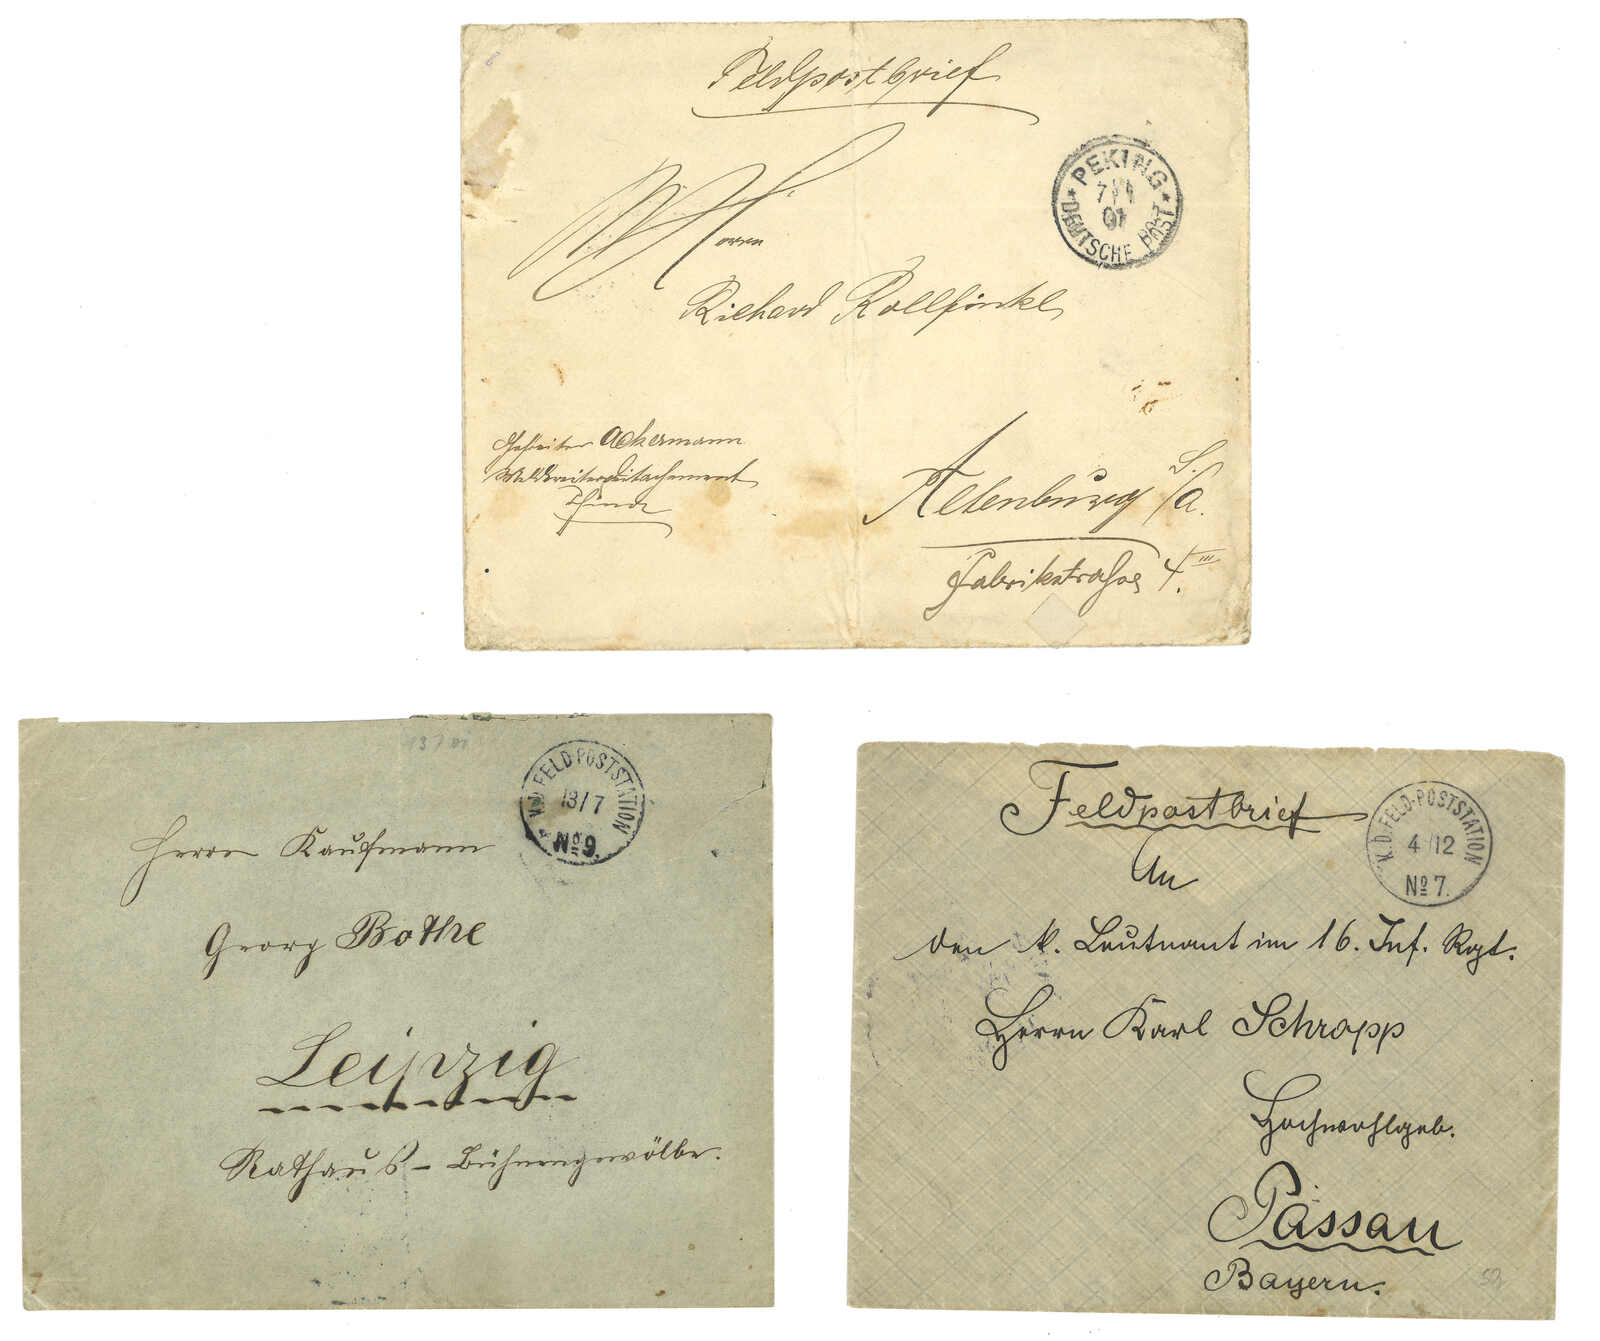 Feldpostbrief
PEKING
7/4
01
DEUTSCHE POST
Herrn
Richard Rollfinke
Gefreiter Ackermann
China
Altenburg S/A.
Fabrikstraße 4. III
13 7 01
K.D. FELD POSTSTATION
13/7
No 9.
Herrn Kaufmann
Georg Bothe
Leipzig
Rathaus - Bühnengewölbe.
Feldpostbrief
K.D. FELD-POSTSTATION
4/12
No 7.
An
den k. Leutnant im 16. Inf. Rgt.
Herrn Karl Schropp
Hochwohlgeb.
Passau
Bayern.